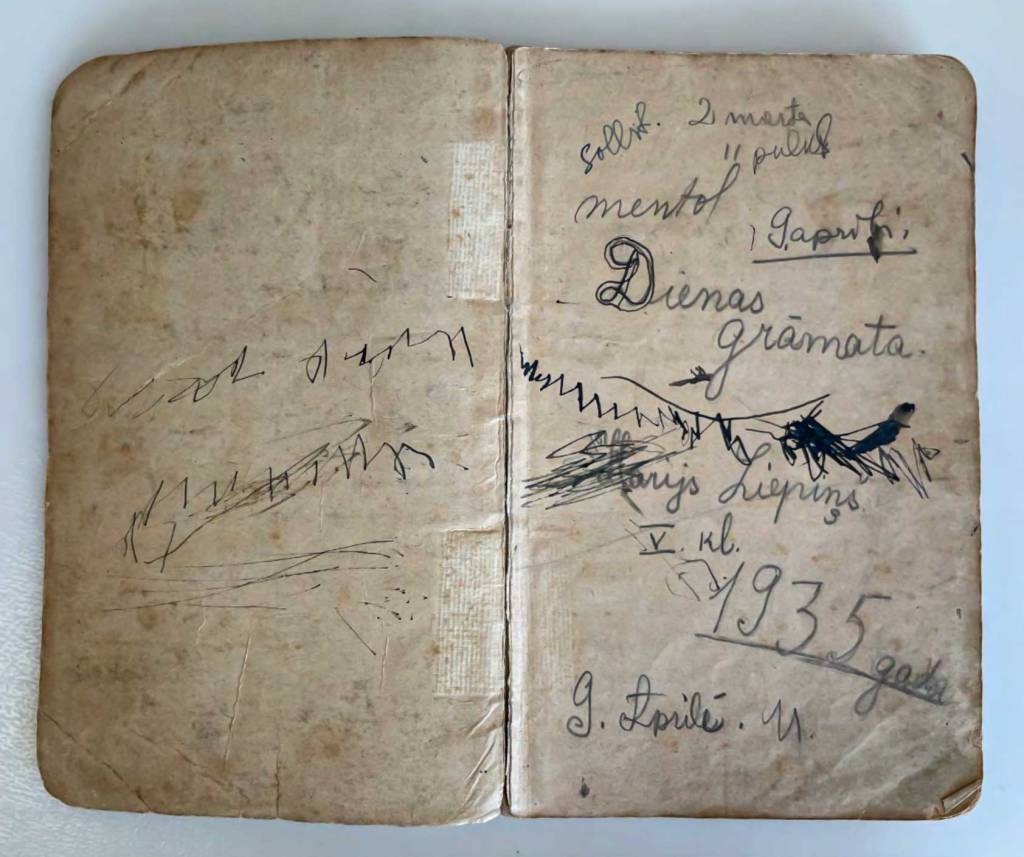 2 marta
" pulkst
mentol
9 aprīlī.
Dienas
grāmata.
Liepiņš
V. kl.
1935 gada
9. Aprīlē. 11.